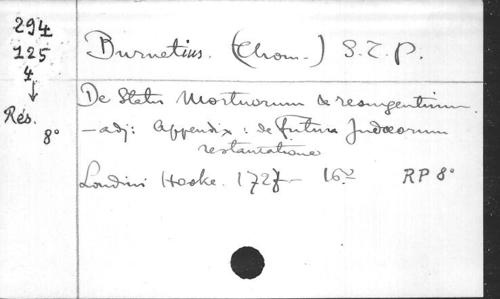 294
125
4
Rés.
8°
Burnetius. (Thom.-) S.T.P.
De Statu Mortuorum & resurgentium
- adj: Appendix : de Futura Judæorum
restauratione
Londini Hooke. 1727 - 16° RP 8°